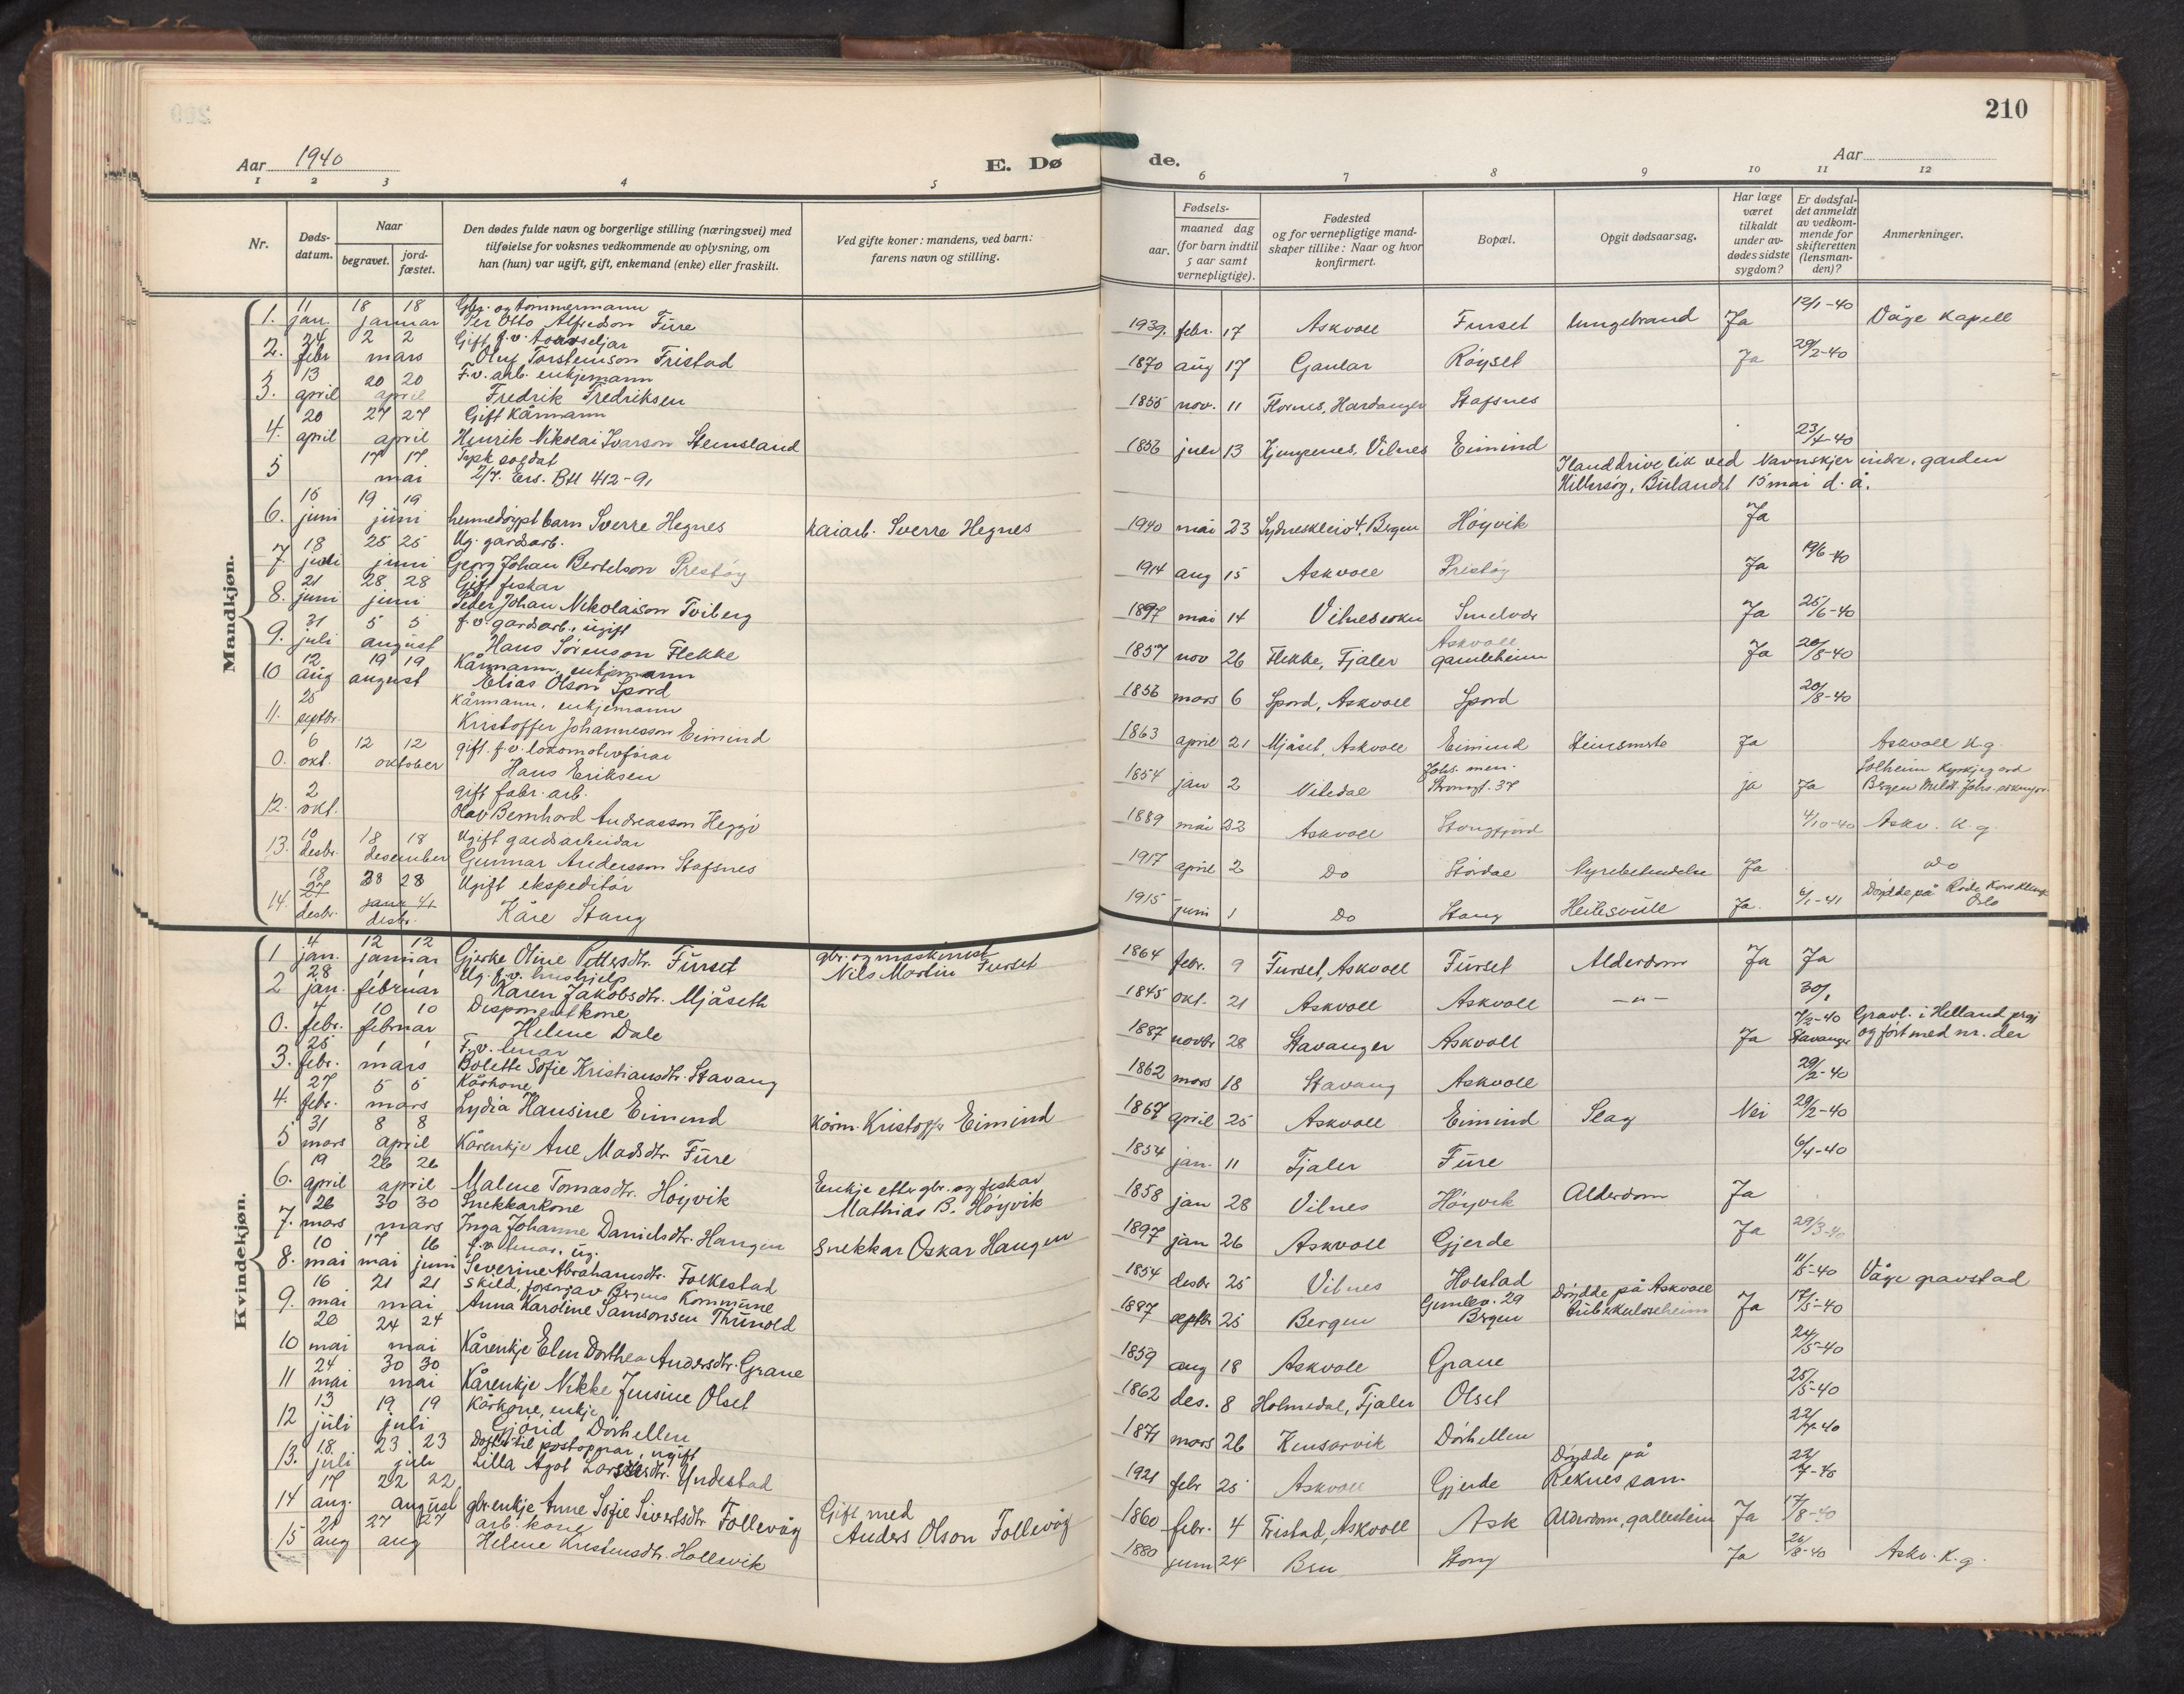 210
Aar 1940
E. Dø
de.
Aar
1 2 3 4 5 6 7 8 9 10 11 12
Nr.
Døds-datum.
Naar
begravet.
jord-fæstet.
Den dødes fulde navn og borgerlige stilling (næringsvei) med
tilføielse for voksnes vedkommende av oplysning, om
han (hun) var ugift, gift, enkemand (enke) eller fraskilt.
Ved gifte koner: mandens, ved barn:
farens navn og stilling.
Fødsels-
aar.
maaned dag
(for barn indtil
5 aar samt
vernepligtige).
Fødested
og for vernepligtige mand-
skaper tillike: Naar og hvor
konfirmert.
Bopæl.
Opgit dødsaarsag.
Har læge
været
tilkaldt
under av-
dødes sidste
sygdom?
Er dødsfal-
det anmeldt
av vedkom-
mende for
skifteretten
(lensman-
den)?
Anmerkninger.
Mandkjøn.
1. 11 jan. 18 18 januar Gbr. og tømmermann Per Otto Alfredson Fure 1939 febr. 17 Askvoll Furset lungebrand Ja 12/1-40 Våge kapell
2. 24 febr 2 2 mars Gift f.v. Oluf Torsteinson Fristad 1870 aug 17 Gaular Röyset Ja 29/2-40
3. 13 april 20 20 april F.v. arb. enkjemann Fredrik Fredriksen 1855 nov. 11 Hardanger Stafsnes
4. 20 april 27 27 april Gift kårmann Henrik Nikolai Ivarson Stemsland 1856 juli 13 Vilnes Eimind 23/4-40
5 17 17 mai Tysk soldat 2/7. Ers. Btl 412-91 Ilanddrive lik ved Navnskjer indre, garden
Bulandet 15 mai d. å.
6. 15 juni 19 19 juni heimedöypt barn Sverre Hegnes kaiarb. Sverre Hegnes 1940 mai 23 Bergen Höyvik Ja
7. 18 juni 25 25 juni Ug. gardsarb. Georg Johan Bertelson Prestöy 1914 aug 15 Askvoll Prestöy Ja 19/6-40
8. 21 juni 28 28 juni Gift fiskar Peder Johan Nikolaison Tviberg 1897 mai 14 Vilnes sokn Ja 25/6-40
9. 31 juli 5 5 august f.v. gardsarb., ugift Hans Sörenson Flekke 1857 nov 26 Flekke, Fjaler Askvoll gamleheim Ja 20/8-40
10 12 aug 19 19 august Kårmann, enkjemann Elias Olson Spord 1856 mars 6 Spord, Askvoll Spord 20/8-40
11. 25 septbr. Kårmann, enkjemann Kristoffer Johannesson Eimind 1863 april 21 Mjåset, Askvoll Eimind Ja Askvoll k.g.
0. 6 okt. 12 12 oktober gift. f.v. lokomotivförar Hans Eriksen 1854 jan 2 Johs. men. 37 ja Ja Solheim kyrkjegard Bergen
12. 2 okt. gift fabr. arb. Olav Bernhard Andreasson Heggö 1889 mai 22 Askvoll Stongfjord 4/10-40 Askv. k.g.
13. 10 desbr. 18 18 desember Ugift gardsarbeidar Gunnar Andersson Stafsnes 1917 april 2 Do Stördal Nyrebetendelse Ja do
14. 18 27 desbr. 28 28 jan. 41 desbr. Ugift ekspeditör Kåre Stang 1915 juni 1 Do Stang Ja. 6/1-41 Döydde på Röde Kors klinik Oslo
Kvindekjøn.
1 4 jan. 12 12 januar Gjerke Oline Pettersdtr. Furset gbr. og maskinist Nils Martin Furset 1864 febr. 9 Furset, Askvoll Furset Alderdom Ja Ja
2 28 jan. 1 1 februar Ug. f.v. hushjelp Karen Jakobsdtr. Mjåseth 1845 okt. 21 Askvoll Askvoll —"— 30/1
0. 4 febr. 10 10 februar Disponentkone Helene Dale 1887 novbr 28 Stavanger Askvoll Ja 7/2-40 Stavanger Gravl. i Helland prgj og fört med nr. der
3. 25 febr. 1 1 mars F.v. lærar Bolette Sofie Kristiansdtr. Stavang 1862 mars 18 Stavang Askvoll 29/2-40
4. 27 febr. 5 5 mars Kårkone Lydia Hansine Eimind kårm. Kristoffer Eimind 1867 april 25 Askvoll Eimind Slag Nei 29/2-40
5 31 mars 8 8 april Kårenkje Ane Madsdtr. Fure 1854 jan. 11 Fjaler Fure 6/4-40
6. 19 april 26 26 april Malene Tomasdtr. Höyvik Enkje etter gbr. og fiskar Mathias B. Höyvik 1858 jan 28 Vilnes Höyvik Alderdom Ja
7. 26 mars 30 30 mars Snekkarkone Inga Johanne Danielsdtr. Haugen Snekkar Oskar Haugen 1897 jan 26 Askvoll Gjerde Ja 29/3-40
8. 10 mai 17 mai 16 juni f.v. lærar, ug. Severine Abrahamsdtr. Folkestad 1854 desbr 25 Vilnes Holstad 11/5-40 Våge gravstad
9. 16 mai 21 21 mai Skild, forsörgj av Bergens Kommune Anna Karoline Samsonsen Thunold 1897 septbr 25 Bergen 29 Bergen Döydde på Askvoll tuberkuloseheim Ja 17/5-40
10 20 mai 24 24 mai Kårenkje Elen Dorthea Andersdtr. Grane 1859 aug 18 Askvoll Grane 24/5-40
11 24 mai 30 30 mai Kårenkje Nikke Jensine Olset 1862 des. 8 Holmedal, Fjaler Olset 25/5-40
12 13 juli 19 19 juli Kårkone, enkje Gjörid Dörhellen 1871 mars 26 Kinsarvik Dörhellen 22/7-40
13. 18. juli 23 23 juli Dotter til postopnar, ugift Lilla Agot Larsdtr. Yndestad 1921 febr 25 Askvoll Gjerde Döydde på Reknes san. 22/7-40
14 17 aug. 22 22 august gbr.enkje Anne Sofie Sivertsdtr Follevåg Gift med Anders Olson Follevåg 1860 febr. 4 Fristad, Askvoll Ask Alderdom, gallestein Ja 17/8-40
15 21 aug 27 27 aug arb. kone Helene Kristensdtr. Hollevik 1880 juni 24 Bru Stong Ja 26/8-40 Askv. K.g.